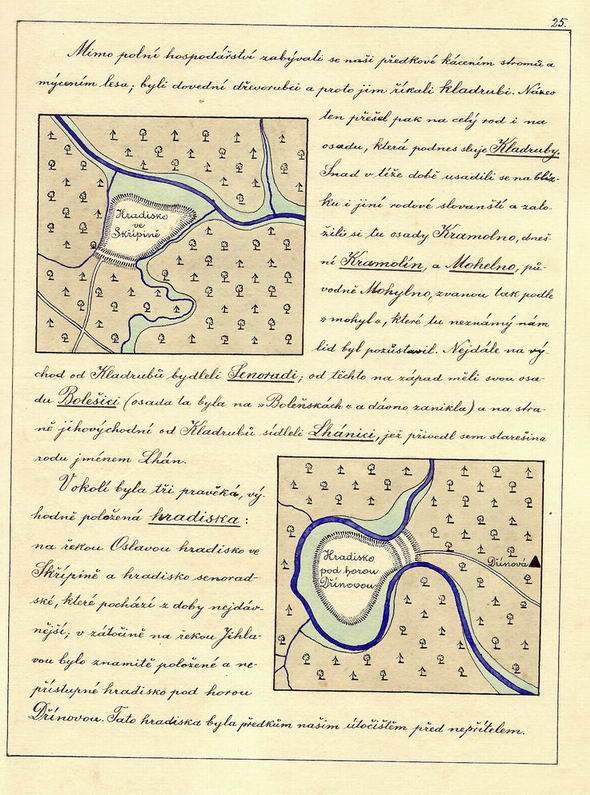 25.
Mimo polní hospodářství zabývali se naši předkové kácením stromů a
mýcením lesa; byli dovední dřevorubci a proto jim říkali kladrubi. Název
ten přešel pak na celý rod i na
osadu, která podnes sluje Kladruby.
Snad v téže době usadili se na blíz-
ku i jiní rodové slovanští a zalo-
žili si tu osady Kramolno, dneš-
ní Kramolín, a Mohelno, pů-
vodně Mohylno, zvanou tak podle
»mohyl«, které tu neznámý nám
lid byl pozůstavil. Nejdále na vý-
chod od Kladrubů bydleli Senoradi; od těchto na západ měli svou osa-
du Bolešici (osada ta byla na »Boleňskách« a dávno zanikla) a na stra-
ně jihovýchodní od Kladrubů sídleli Lhánici, jež přivedl sem starešina
rodu jménem Lhán.
V okolí byla tři pravěká, vý-
hodně položená hradiska:
na řekou Oslavou hradisko ve
Skřípině a hradisko senorad-
ské, které pochází z doby nejdáv-
nější; v zátočině na řekou Jihla-
vou bylo znamitě položené a ne-
přístupné hradisko pod horou
Dřínovou. Tato hradiska byla předkům našim útočištěm před nepřítelem.
Hradisko
ve
Skřípině
Hradisko
pod horou
Dřínovou
Dřínová